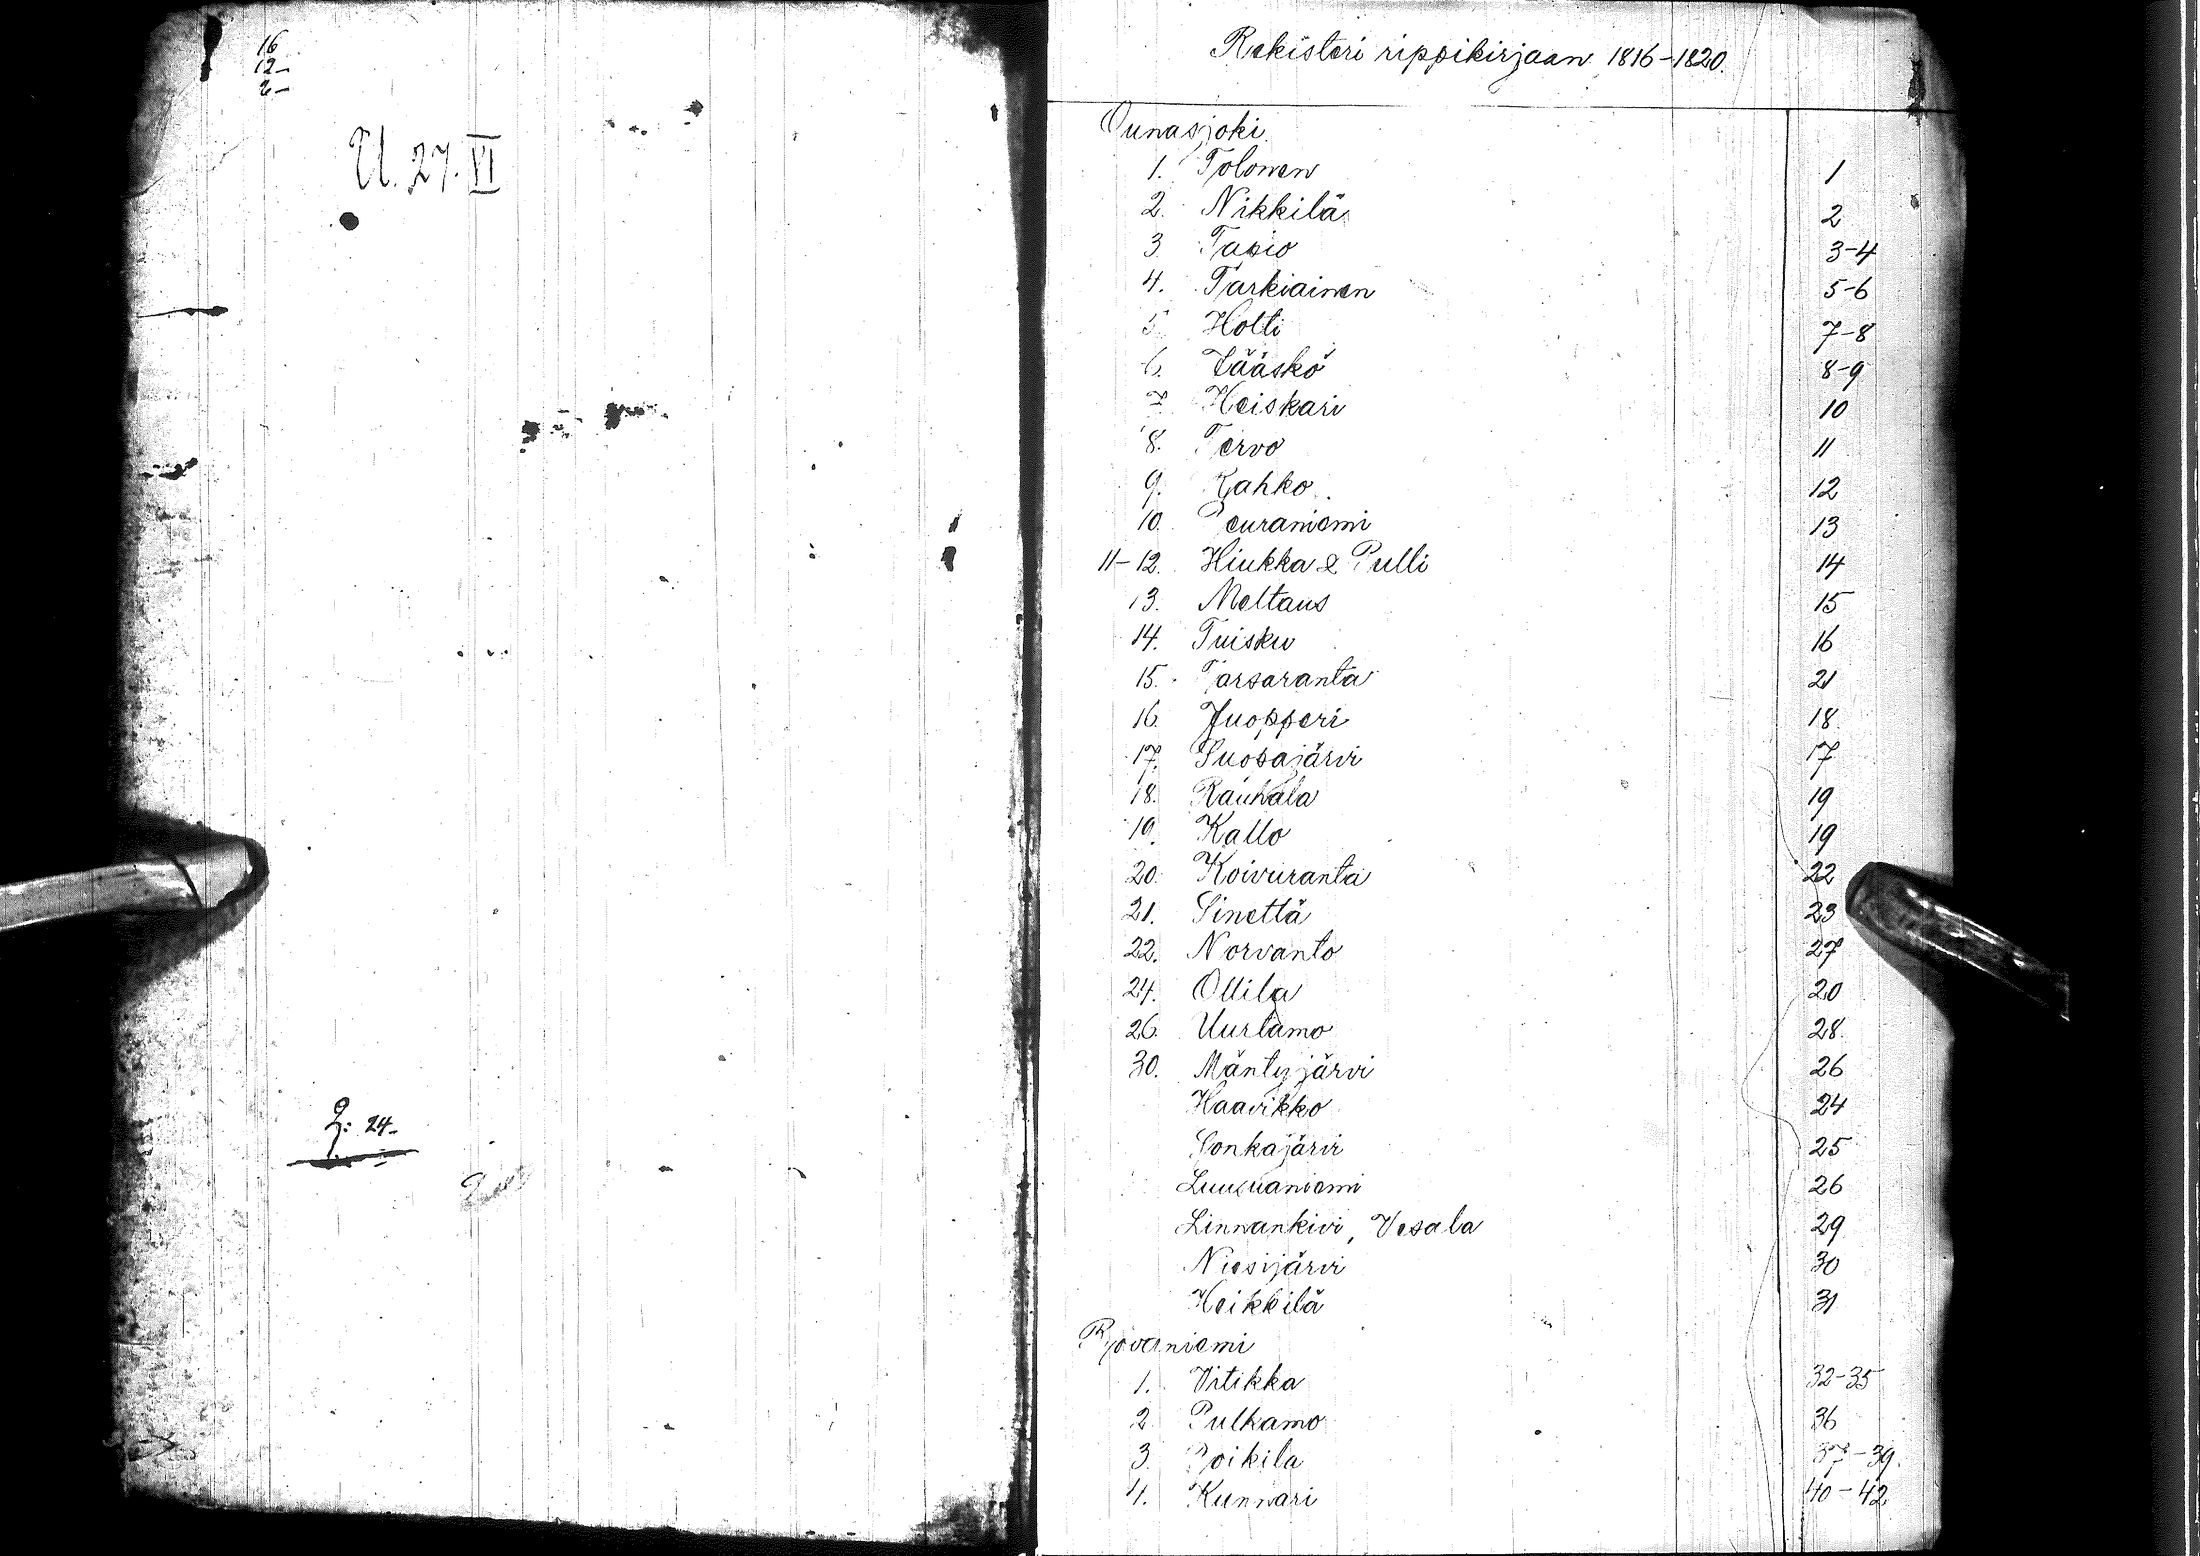 16
12-
2-
U. 27. VI
2: 24-
Rekisteri rippikirjaan 1816-1820.
Ounasjoki
1. Tolonen 1
2. Nikkilä 2
3 Tapio 3-4
4. Tarkiainen 5-6
5 Hotti 7-8
6. Jääskö 8-9
7. Heiskari 10
8. Tervo 11
9. Kahko 12
10. Peuraniemi 13
11-12. Hiukka & Pulli 14
13. Meltaus 15
14. Tuisku 16
15. Tarsaranta 21
16. Juopperi 18
17. Suopajärvi 17
18. Rauhala 19
19. Kallo 19
20. Koivuranta 22
21. Sinettä 23
22. Norvanto 27
24. Ollila 20
26. Uurtamo 28
30. Mäntyjärvi 26
Haavikko 24
Sonkajärvi 25
Luusuaniemi 26
Linnankivi, Vesala 29
Niesijärvi 30
Heikkilä 31
Rovaniemi
1. Vitikka 32-35
2 Pulkamo 36
3. Poikila 37-39.
4. Kunnari 40-42